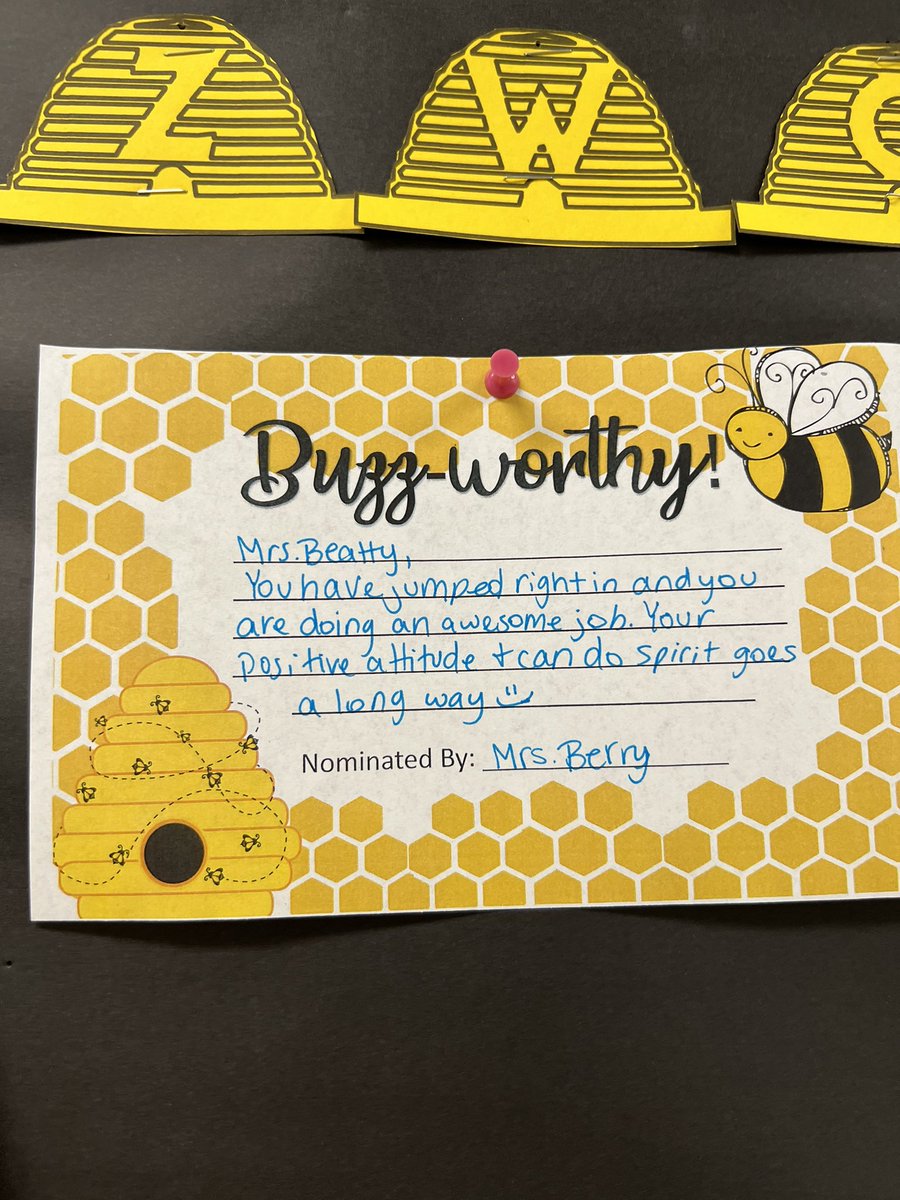 Z W
Buzz-worthy!
Mrs. Beatty,
You have jumped right in and you
are doing an awesome job. Your
positive attitude + can do spirit goes
a long way
Nominated By: Mrs. Berry